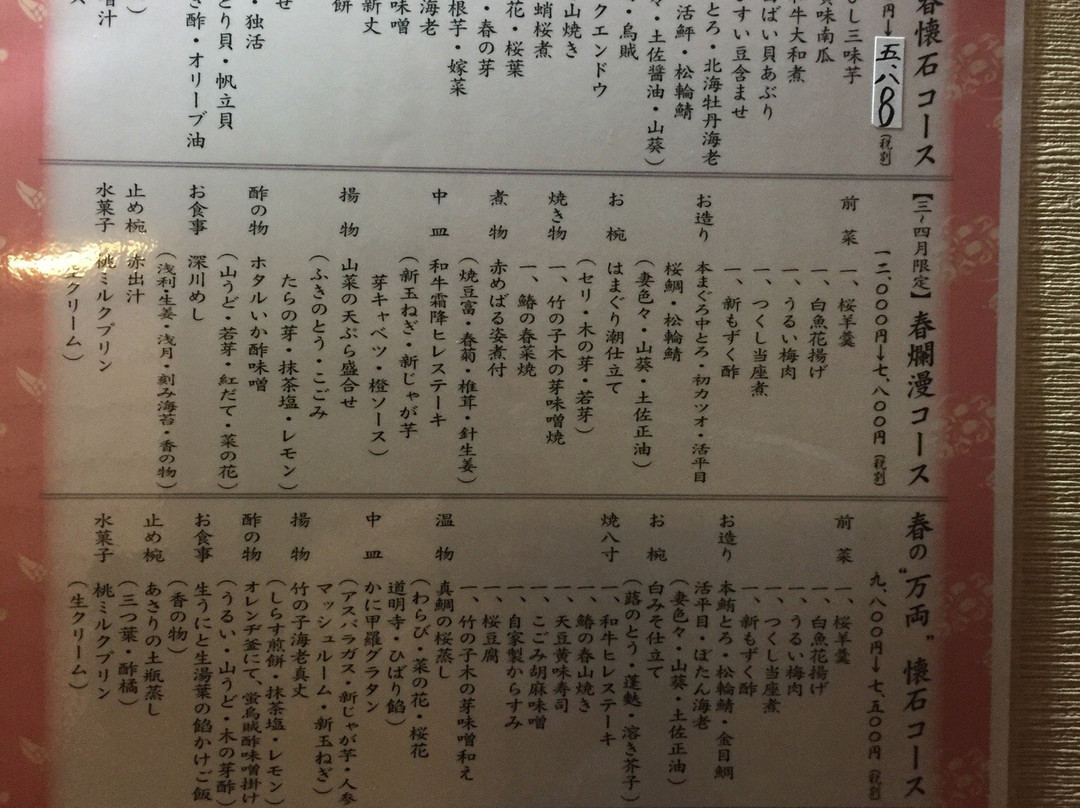 春懐石コース
円→五、八8(税別)
し三味芋
黄味南瓜
和牛大和煮
ばい貝あぶり
すい豆含ませ
とろ・北海牡丹海老
活鮃・松輪鯖
々・土佐醤油・山葵)
・烏賊
クエンドウ
山焼き
蛸桜煮
花・桜葉
・春の芽
根芋・嫁菜
海老
味噌
新丈
餅
せ
・独活
とり貝・帆立貝
き酢・オリーブ油
汁
ス
【三~四月限定】春爛漫コース
一二、〇〇〇円→七、八〇〇円(税別)
前菜 一、桜羊羹
一、白魚花揚げ
一、うるい梅肉
一、つくし当座煮
一、新もずく酢
お造り 本まぐろ中とろ・初カツオ・活平目
桜鯛・松輪鯖
(妻色々・山葵・土佐正油)
お椀 はまぐり潮仕立て
(セリ・木の芽・若芽)
焼き物 一、竹の子木の芽味噌焼
一、鰆の春菜焼
煮物 赤めばる姿煮付
(焼豆富・春菊・椎茸・針生姜)
中皿 和牛霜降ヒレステーキ
(新玉ねぎ・新じゃが芋
芽キャベツ・橙ソース)
揚物 山菜の天ぷら盛合せ
(ふきのとう・こごみ
たらの芽・抹茶塩・レモン)
酢の物 ホタルいか酢味噌
(山うど・若芽・紅だて・菜の花)
お食事 深川めし
(浅利生姜・浅月・刻み海苔・香の物)
止め椀 赤出汁
水菓子 桃ミルクプリン
(生クリーム)
春の"万両"懐石コース
九、八〇〇円→七、五〇〇円(税別)
前菜 一、桜羊羹
一、白魚花揚げ
一、うるい梅肉
一、つくし当座煮
一、新もずく酢
お造り 本鮪とろ・松輪鯖・金目鯛
活平目・ぼたん海老
(妻色々・山葵・土佐正油)
お椀 白みそ仕立て
(蕗のとう・蓬麩・溶き芥子)
焼八寸 一、和牛ヒレステーキ
一、鰆の春山焼き
一、天豆黄味寿司
一、こごみ胡麻味噌
一、自家製からすみ
一、桜豆腐
一、竹の子木の芽味噌和え
温物 真鯛の桜蒸し
(わらび・菜の花・桜花
道明寺・ひばり餡)
中皿 かに甲羅グラタン
(アスパラガス・新じゃが芋・人参
マッシュルーム・新玉ねぎ)
揚物 竹の子海老真丈
(しらす煎餅・抹茶塩・レモン)
酢の物 オレンヂ釜にて、蛍烏賊酢味噌掛け
(うるい・山うど・木の芽酢)
お食事 生うにと生湯葉の餡かけご飯
(香の物)
止め椀 あさりの土瓶蒸し
(三つ葉・酢橘)
水菓子 桃ミルクプリン
(生クリーム)